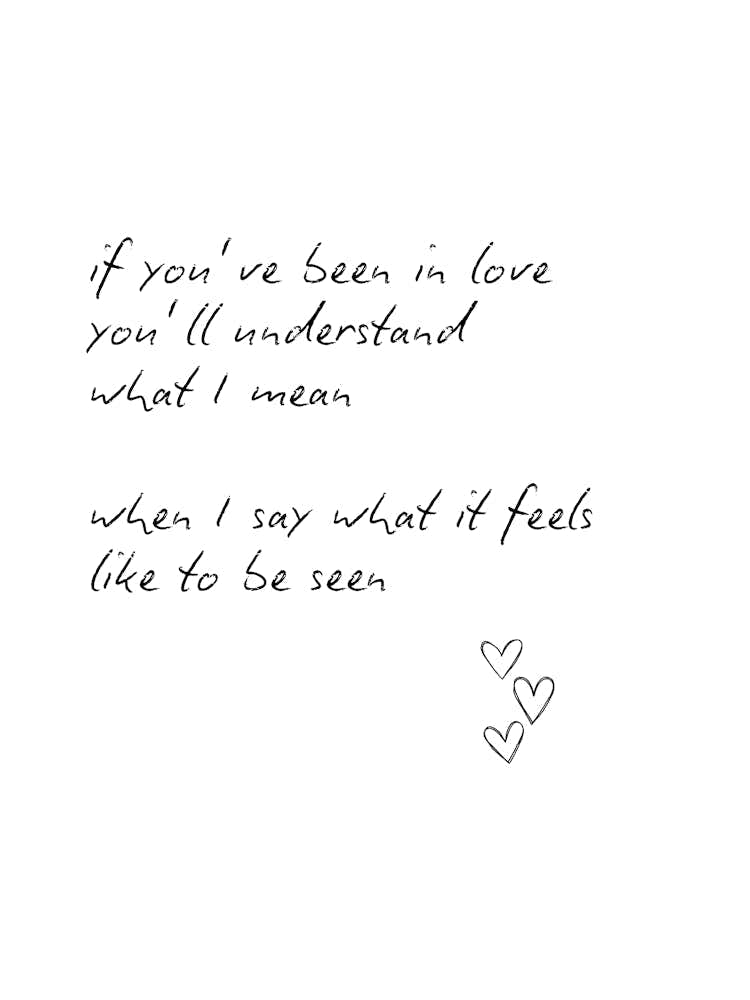 if you've been in love
you'll understand
what I mean
when I say what it feels
like to be seen